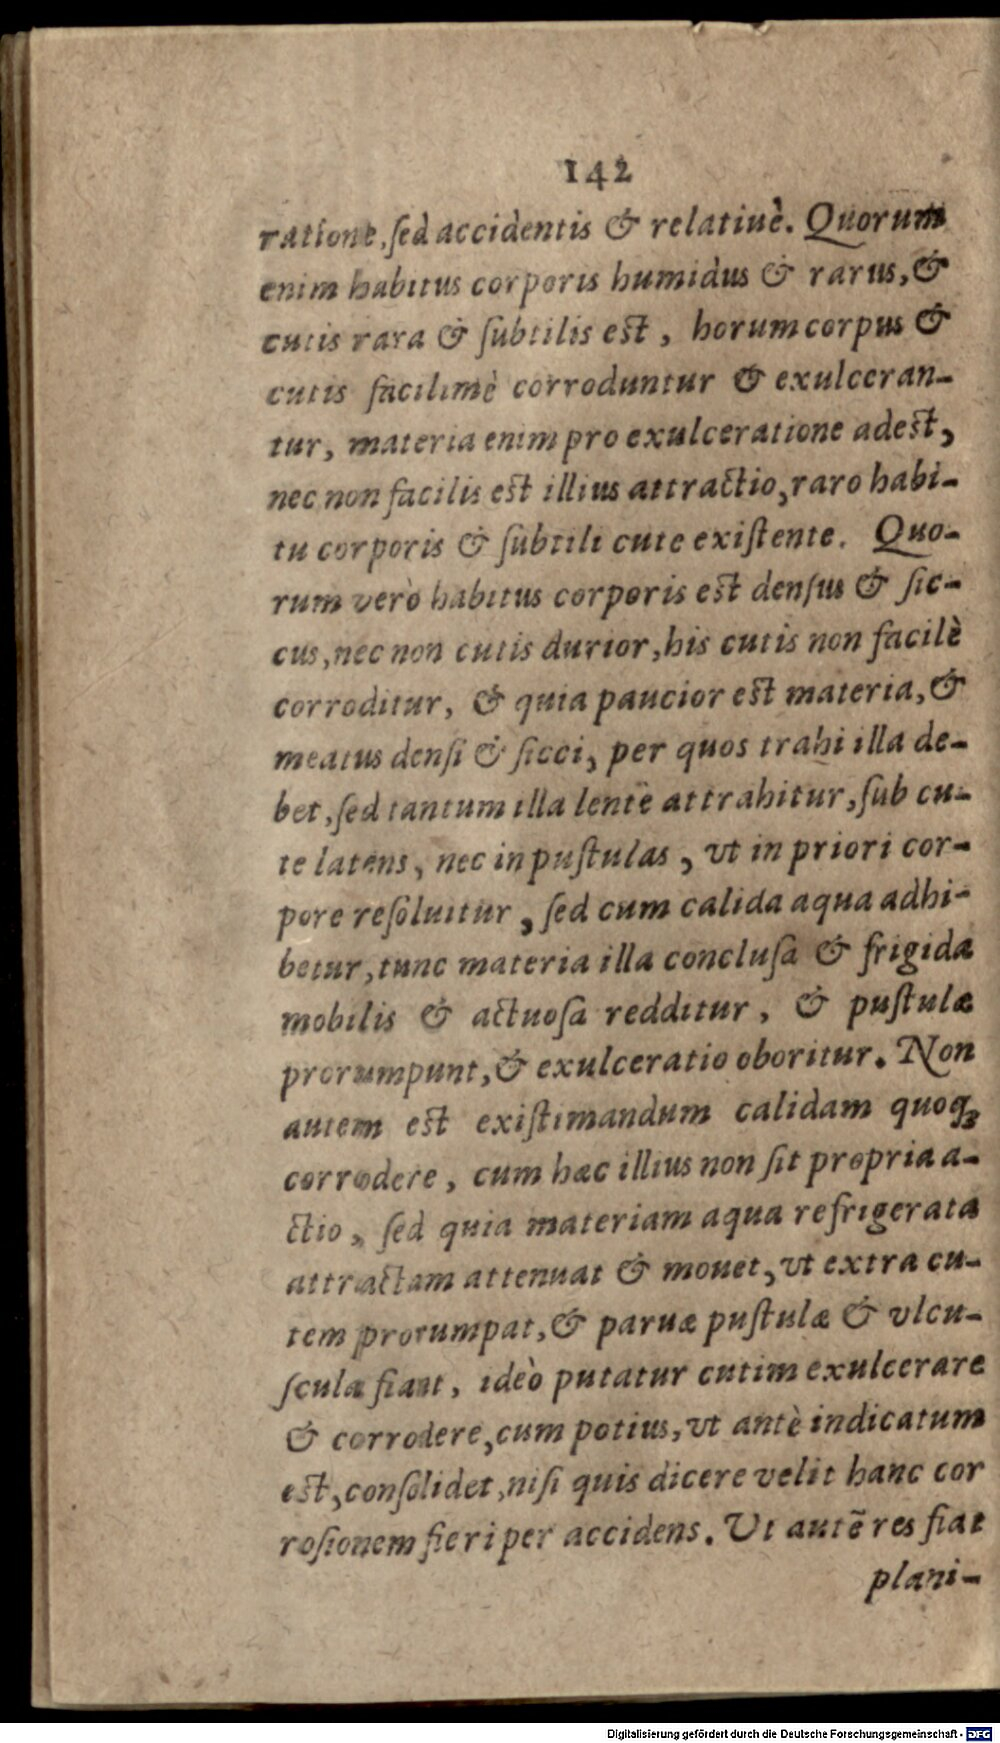 142
ratione, ſed accidentis & relatiuè. Quorum
enim habitus corporis humidus & rarus, &
cutis rara & ſubtilis eſt, horum corpus &
cutis facilimè corroduntur & exulceran-
tur, materia enim pro exulceratione adeſt,
nec non facilis eſt illius attractio, raro habi-
tu corporis & ſubtili cute exiſtente. Quo-
rum verò habitus corporis eſt denſus & ſic-
cus, nec non cutis durior, his cutis non facilè
corroditur, & quia paucior eſt materia, &
meatus denſi & ſicci, per quos trahi illa de-
bet, ſed tantum illa lentè attrahitur, ſub cu-
te latens, nec in puſtulas, vt in priori cor-
pore reſoluitur, ſed cum calida aqua adhi-
betur, tunc materia illa concluſa & frigida
mobilis & actuoſa redditur, & puſtulæ
prorumpunt, & exulceratio oboritur. Non
autem eſt exiſtimandum calidam quoq;
corrodere, cum hæc illius non ſit propria a-
ctio, ſed quia materiam aqua refrigerata
attractam attenuat & mouet, vt extra cu-
tem prorumpat, & paruæ puſtulæ & vlcu-
ſcula fiant, ideò putatur cutim exulcerare
& corrodere, cum potius, vt antè indicatum
eſt, conſolidet, niſi quis dicere velit hanc cor
roſionem fieri per accidens. Ut autẽ res fiat
plani-
Digitalisierung gefördert durch die Deutsche Forschungsgemeinschaft - DFG